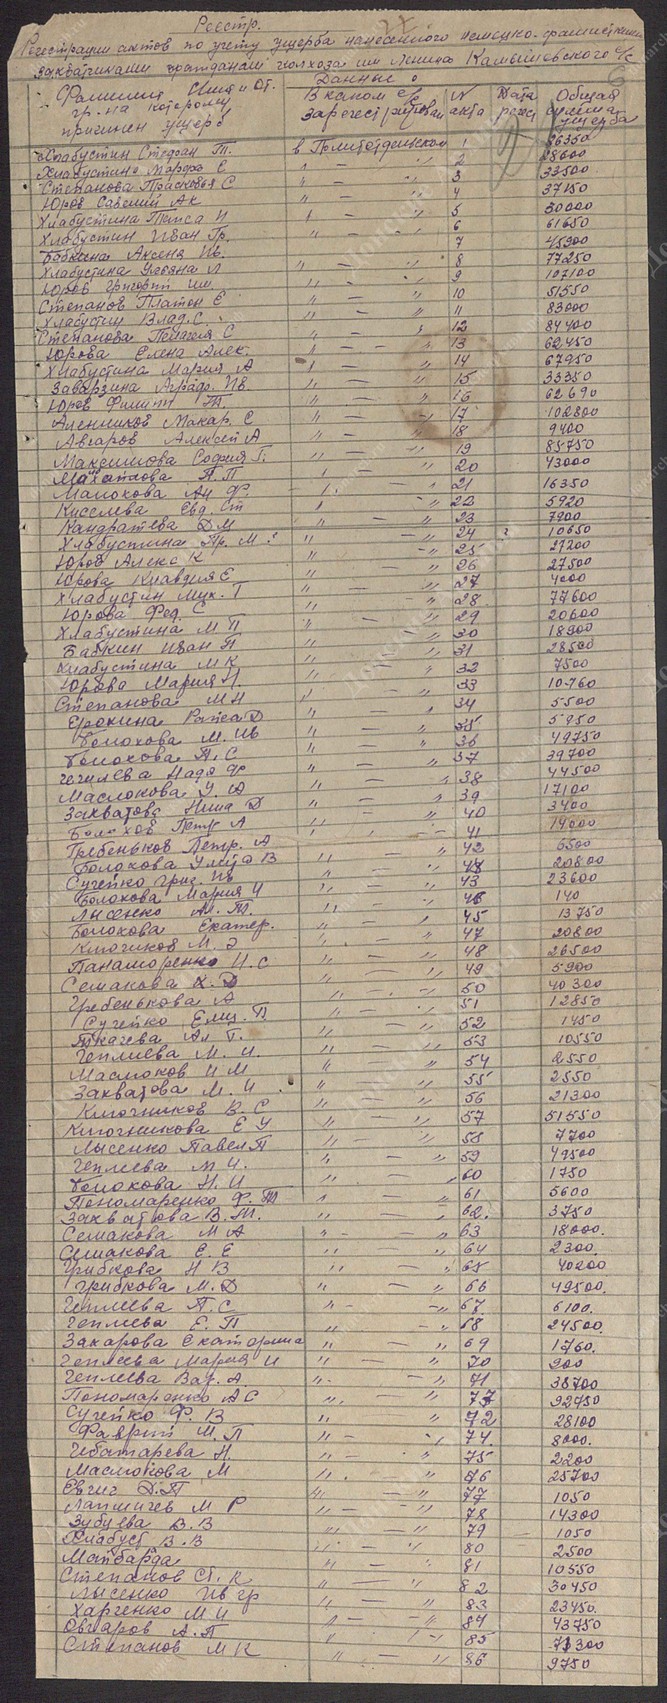 Реестр.
Регистрации актов по учету ущерба нанесенного немецко-фашистскими
захватчиками гражданам колхоза им Ленина Камышевского с/с
Фамилия Имя и От. гр. на которому причинен ущерб
Данные о
В каком с/с зарегестрирован
N акта
Дата регист
Общая сумма ущерба
Хлабустин Стефан Т. в Политотдельском 1 26350
Хлабустина Марфа Е " — " 2 28600
Степанова Прасковья С " — " 3 33500
Юров Савелий Ак 4 37150
Хлабустина Таиса И " — " 5 30000
Хлабустин Иван Гр. " — " 6 61650
Бабкина Аксена Ив. 7 45900
Хлабустина Устяна Л " — " 8 77250
Юров Григорий Им. " — " 9 107100
Степанов Платон Е " — " 10 51550
Хлабустин Влад. С. " — " 11 83000
Степанова Пелагея С " — " 12 84400
Юрова Елена Алек. " — " 13 62450
Хлабустина Мария А " — " 14 67950
Заварзина Аграф. Ив " — " 15 33350
Юров Филипп Т. " — " 16 62690
Аленников Макар. С " — " 17 102800
Авсаров Алексей А " — " 18 9400
Максимова София Г. " — " 19 85750
Михайлова А. П " — " 20 43000
Малохова Ан Ф. " — " 21 16350
Киселева Евд. Ст " — " 22 5920
Кандратева Д М " — " 23 7900
Хлабустина Пр. М " — " 24 10650
Юров Алекс К " — " 25 27200
Юрова Клавдия Е " — " 26 27500
Хлабустин Мих. Т " — " 27 4000
Юрова Фед. С " — " 28 77600
Хлабустина М П " — " 29 20600
Бабкин Иван П " — " 30 18900
Хлабустина М К " — " 31 28500
Юрова Мария Н. " — " 32 7500
Степанова М Н 33 10760
Ерокина Раиса Д " — " 34 5500
Болохова М. Ив " — " 35 5950
Болохова П. С " — " 36 49750
Чеплева Надо Ф " — " 37 39700
Маслокова У. А " — " 38 44500
Захватова Нина Д " — " 39 17100
Болохов Петр А " — " 40 3400
Гребеньков Петр. А " — " 41 14000
Болохова Улита В " — " 42 6500
Сучейко Григ. Ив " — " 43 20800
Болохова Мария И " — " 43 23600
Лысенко Ал. Т. " — " 46 140
Болохова Екатер. " — " 45 13750
Ключиков М. Э " — " 47 20800
Панаморенко И. С " — " 48 26500
Семакова Х. Д " — " 49 5900
Гребенькова А " — " 50 40300
Сучейко Елиз. П. " — " 51 12850
Ткачева Ал Т. " — " 52 1450
Чеплиева М. И. " — " 53 10550
Маслоков И М " — " 54 2550
Захватова М. И " — " 55 2550
Ключников В. С " — " 56 21300
Ключникова Е У " — " 57 51550
Лысенко Павел П " — " 58 7700
Чеплеева М И. " — " 59 49500
Болохова Н. И " — " 60 1750
Пономаренко Ф. Т " — " 61 5600
Захватова В. Т. " — " 62. 3750
Семакова М А " — " 63 18000.
Семакова Е. Е " — " 64 2300.
Грибкова Н В " — " 65 40200
Грибкова М. Д " — " 66 49500.
Чеплеева П. С " — " 67 6100.
Чеплеева Е. П " — " 68 24500.
Захарова Екатерина " — " 69 1760.
Чеплеева Мария И " — " 70 900
Чеплеева Вар. А " — " 71 38700
Пономаренко А С " — " 77 92750
Сучейко Ф. В " — " 72 28100
Фаврит М. П " — " 74. 8000.
Чеботарева Н. " — " 75 2200
Маслокова М " — " 76 25700
Евгиг Д. П " — " 77 1050
Лапшичев М Р " — " 78 14300
Зубцева В. В " — " 79 1050
Хлабуст В. В " — " 80 2500
Майбарда " — " 81 10550
Степанов Ст. К " — " 82 30450
Лысенко Ив Гр " — " 83 23450.
Харченко М И " — " 84 43750
Овчаров А. П " — " 85 71300
Степанов М К " — " 86 9750